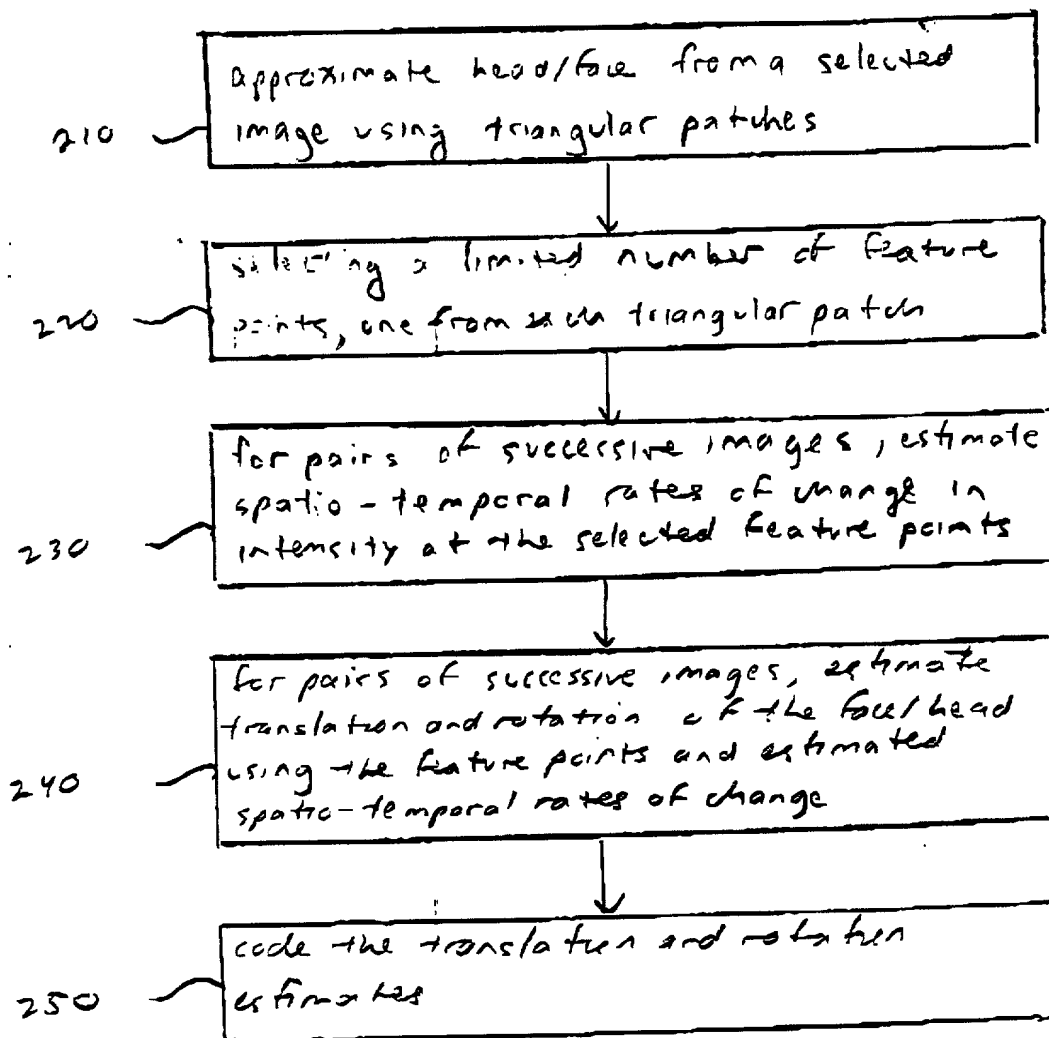 210
approximate head/face from a selected
image using triangular patches
220
selecting a limited number of feature
points, one from each triangular patch
230
for pairs of successive images, estimate
spatio-temporal rates of change in
intensity at the selected feature points
240
for pairs of successive images, estimate
translation and rotation of the face/head
using the feature points and estimated
spatio-temporal rates of change
250
code the translation and rotation
estimates